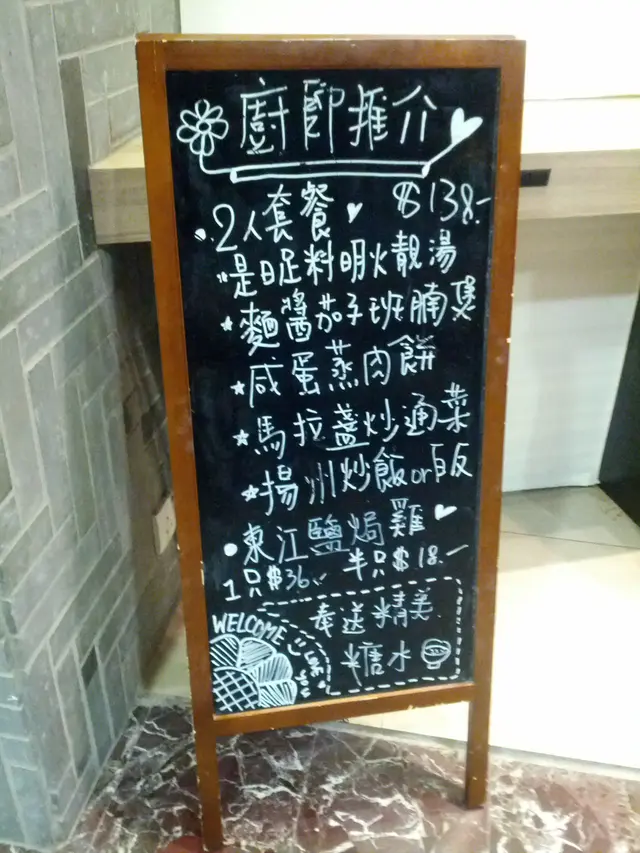 廚即推介
2人套餐 $138.-
是日足料明火靚湯
麵醬茄子班腩煲
咸蛋蒸肉餅
馬拉盞炒通菜
揚州炒飯or白飯
東江鹽焗雞
1只$36.- 半只$18.-
奉送精美
糖水
WELCOME
LOVE
YOU